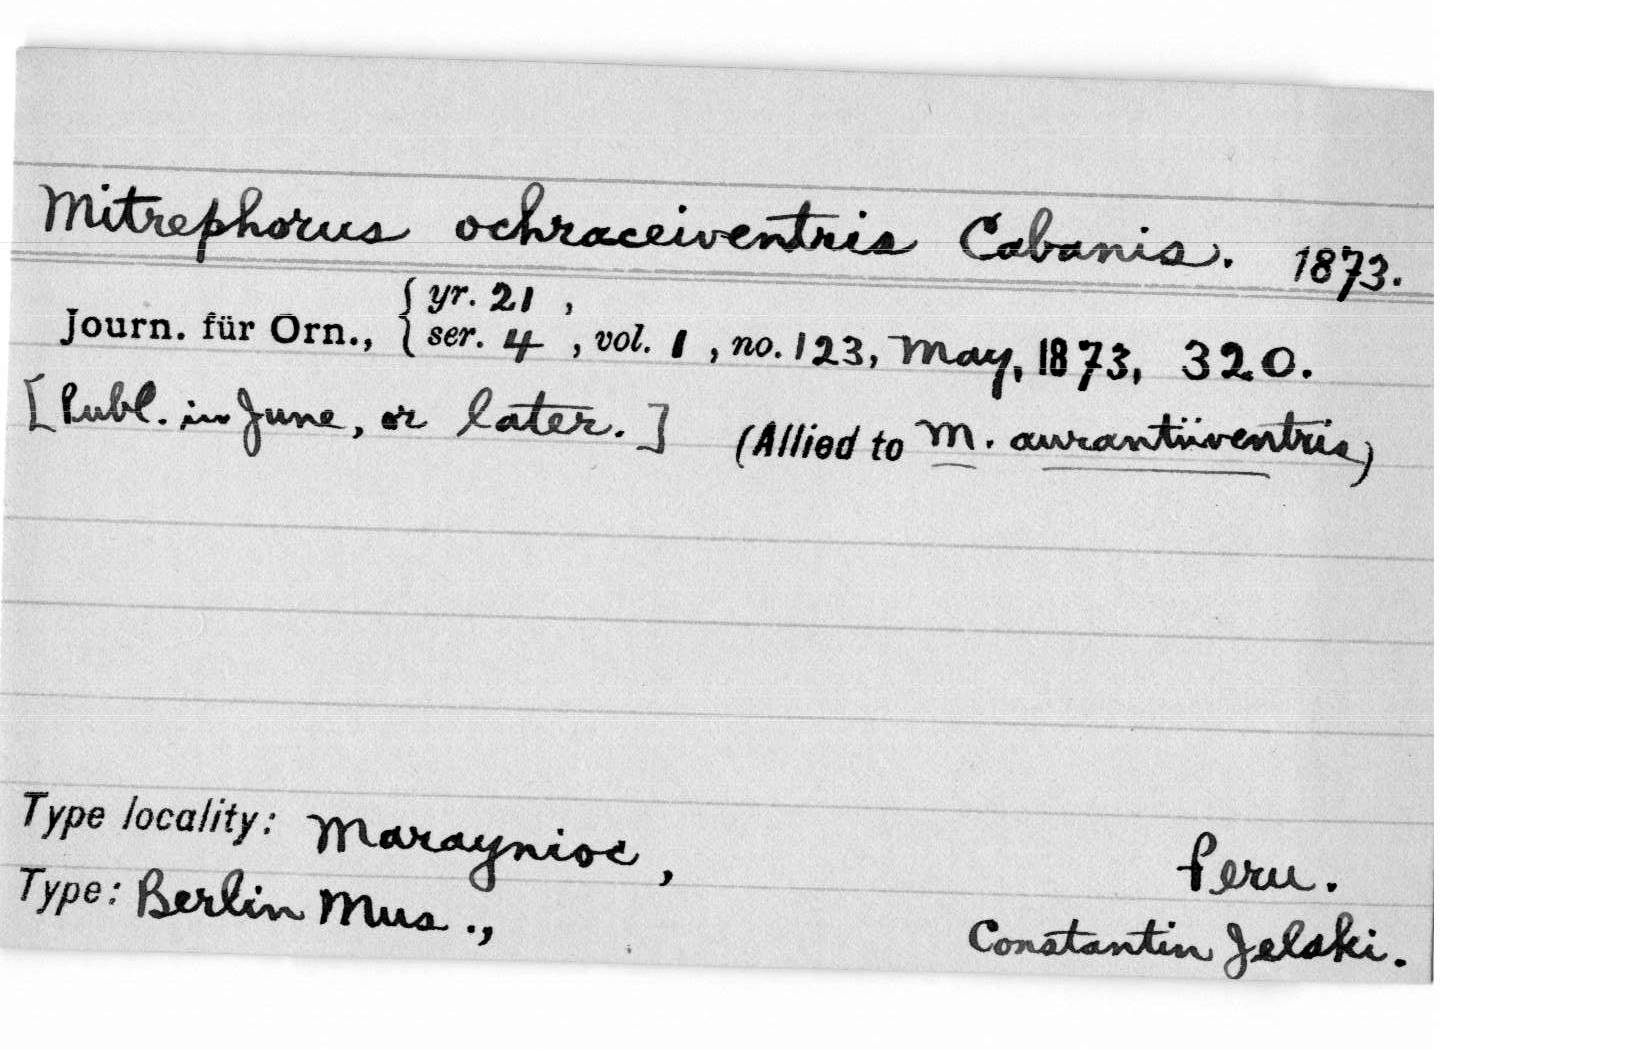 Mitrephorus ochraceiventris Cabanis. 1873.
Journ. für Orn., { yr. 21 ,
ser. 4 , vol. 1 , no. 123, May, 1873, 320.
[Publ. in June, or later.] (Allied to M. aurantiiventris)
Type locality: Maraynioc, Peru.
Type: Berlin Mus., Constantin Jelski.